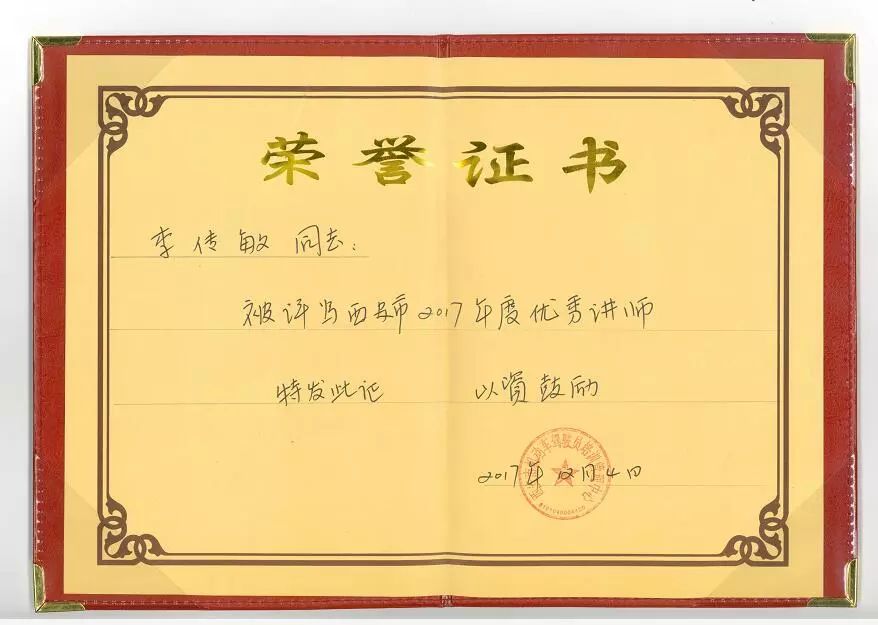 荣誉证书
李传敏 同志：
被评为西安市2017年度优秀讲师
特发此证 以资鼓励
2017年12月4日
机动车驾驶员培训 中心